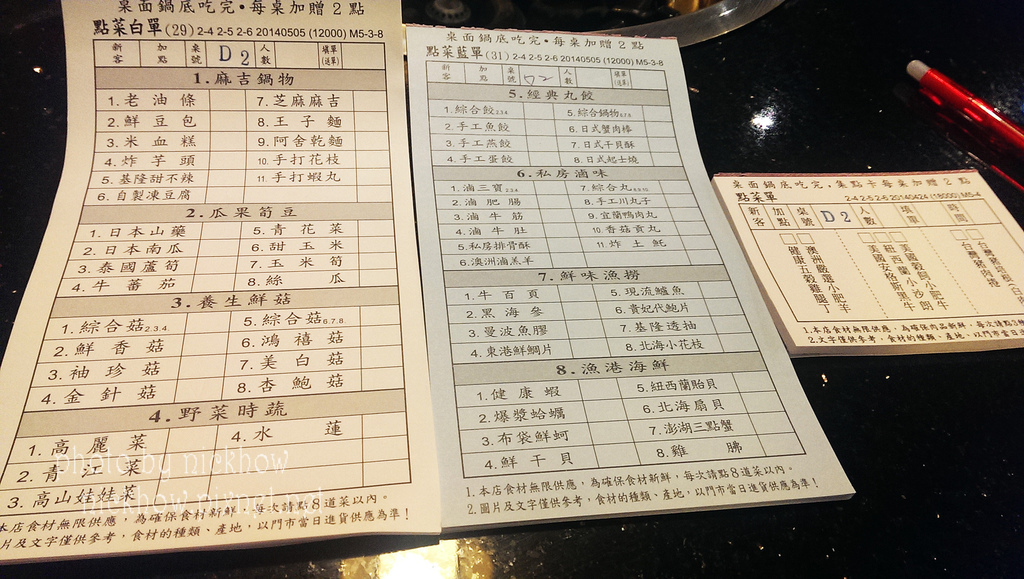 桌面鍋底吃完•每桌加贈2點
點菜白單(29) 2-4 2-5 2-6 20140505 (12000) M5-3-8
新客 加點 桌號 D2 人數 填單(送單)
1.麻吉鍋物
1.老油條 7.芝麻麻吉
2.鮮豆包 8.王子麵
3.米血糕 9.阿舍乾麵
4.炸芋頭 10.手打花枝
5.基隆甜不辣 11.手打蝦丸
6.自製凍豆腐
2.瓜果筍豆
1.日本山藥 5.青花菜
2.日本南瓜 6.甜玉米
3.泰國蘆筍 7.玉米筍
4.牛蕃茄 8.絲瓜
3.養生鮮菇
1.綜合菇2.3.4. 5.綜合菇6.7.8.
2.鮮香菇 6.鴻禧菇
3.袖珍菇 7.美白菇
4.金針菇 8.杏鮑菇
4.野菜時蔬
1.高麗菜 4.水蓮
2.青江菜
3.高山娃娃菜
本店食材無限供應，為確保食材新鮮，每次請點8道菜以內。
片及文字僅供參考，食材的種類、產地，以門市當日進貨供應為準！
photo by nickhow
nickhow.pixnet.net
桌面鍋底吃完•每桌加贈2點
點菜藍單(31) 2-4 2-5 2-6 20140505 (12000) M5-3-8
新客 加點 桌號 D2 人數 填單(送單)
5.經典丸餃
1.綜合餃2.3.4. 5.綜合鍋物6.7.8.
2.手工魚餃 6.日式蟹肉棒
3.手工燕餃 7.日式干貝酥
4.手工蛋餃 8.日式起士燒
6.私房滷味
1.滷三寶2.3.4. 7.綜合丸8.9.10.
2.滷肥腸 8.手工川丸子
3.滷牛筋 9.宜蘭鴨肉丸
4.滷牛肚 10.香菇貢丸
5.私房排骨酥 11.炸土魠
6.澳洲滷羔羊
7.鮮味漁撈
1.牛百頁 5.現流鱸魚
2.黑海參 6.貴妃代鮑片
3.曼波魚膠 7.基隆透抽
4.東港鮮鯛片 8.北海小花枝
8.漁港海鮮
1.健康蝦 5.紐西蘭貽貝
2.爆漿蛤蠣 6.北海扇貝
3.布袋鮮蚵 7.澎湖三點蟹
4.鮮干貝 8.雞胇
1.本店食材無限供應，為確保食材新鮮，每次請點8道菜以內。
2.圖片及文字僅供參考，食材的種類、產地，以門市當日進貨供應為準！
桌面鍋底吃完，集點卡每桌加贈2點
點菜單 2-4 2-5 2-6 20140424 (18000) M5-4
新客 加點 桌號 D2 人數 填單 時間
台灣
台灣豬肉捲
美國穀飼小肥牛
紐西蘭小沙朗
美國安格斯黑牛
澳洲嚴選小肥羊
健康五穀雞腿丁
1.本店食材無限供應，為確保肉品新鮮，每次請點
2.文字僅供參考，食材的種類、產地，以門市當日進